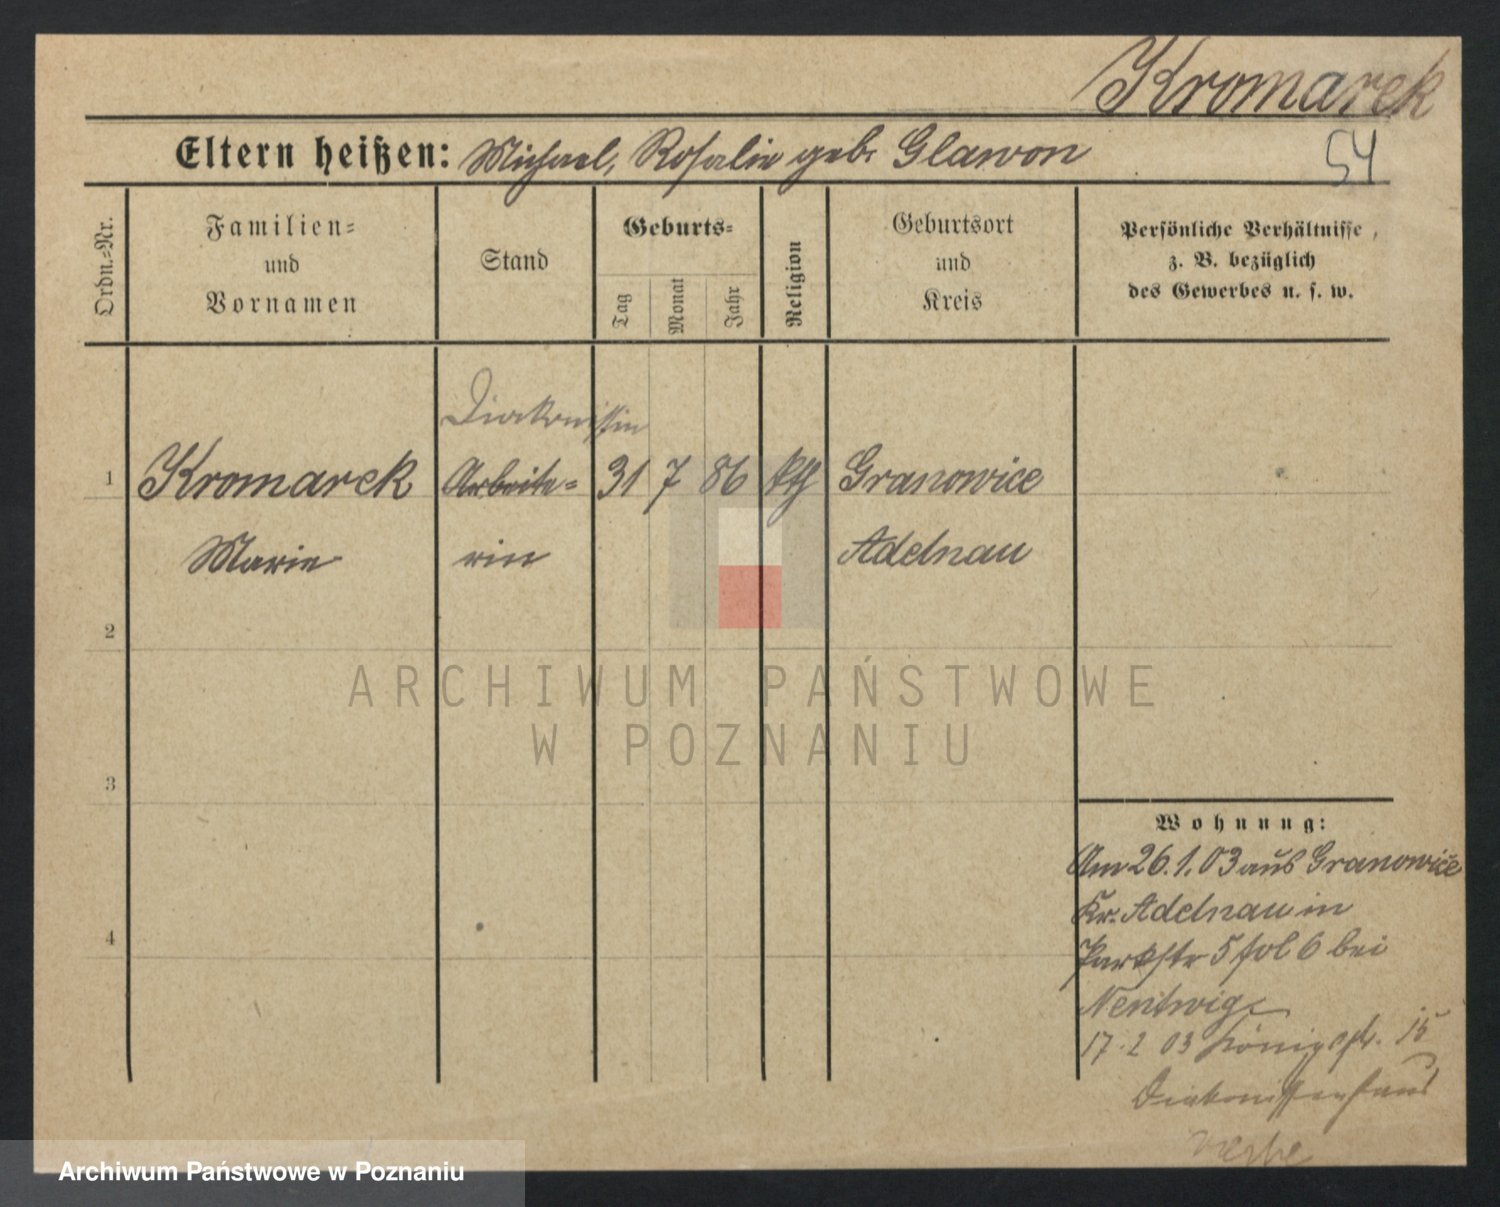 Kromarek
Eltern heißen: Michael, Rosalie geb. Glawon
54
Ordn.-Nr.
Familien-
und
Vornamen
Stand
Geburts-
Tag
Monat
Jahr
Religion
Geburtsort
und
Kreis
Persönliche Verhältnisse,
z. B. bezüglich
des Gewerbes u. s. w.
Diakonissin
1 Kromarek Arbeite- 31 7 86 kth Granowice
Marie rin Adelnau
2
3
4
Wohnung:
Am 26.1.03 aus Granowice
Kr. Adelnau in
Parkstr 5 fol 6 bei
Nentwig
17.2 03 Königstr. 15
Diakonissenhaus
ARCHIWUM PAŃSTWOWE
W POZNANIU
Archiwum Państwowe w Poznaniu